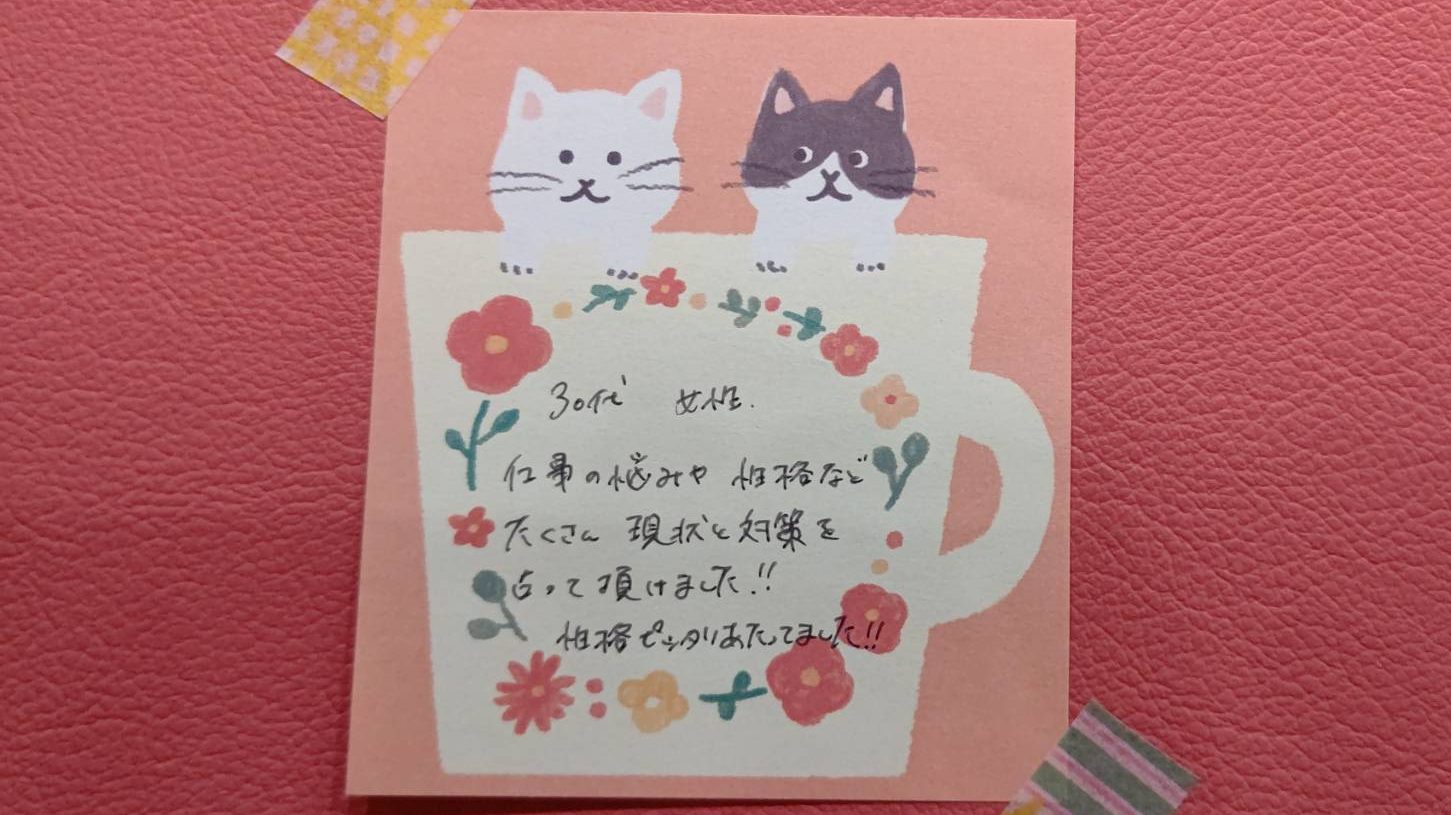 30代 女性.
仕事の悩みや 性格など
たくさん 現状と対策を
占って頂けました!!
性格ピッタリあたってました!!